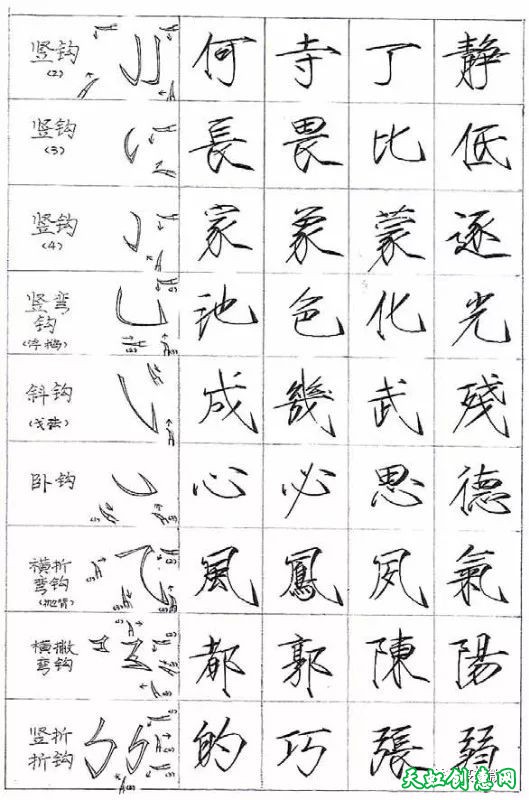 竖钩 何 寺 丁 静
(2)
竖钩 長 畏 比 低
(3)
竖钩 家 象 蒙 逐
(4)
竖弯 池 色 化 光
钩
(浮鹅)
斜钩 成 幾 武 殘
(戈法)
卧钩 心 必 思 德
横折 風 鳳 夙 氣
弯钩
横撇 都 郭 陳 陽
弯钩
竖折 的 巧 張 弱
折钩
天虹创意网